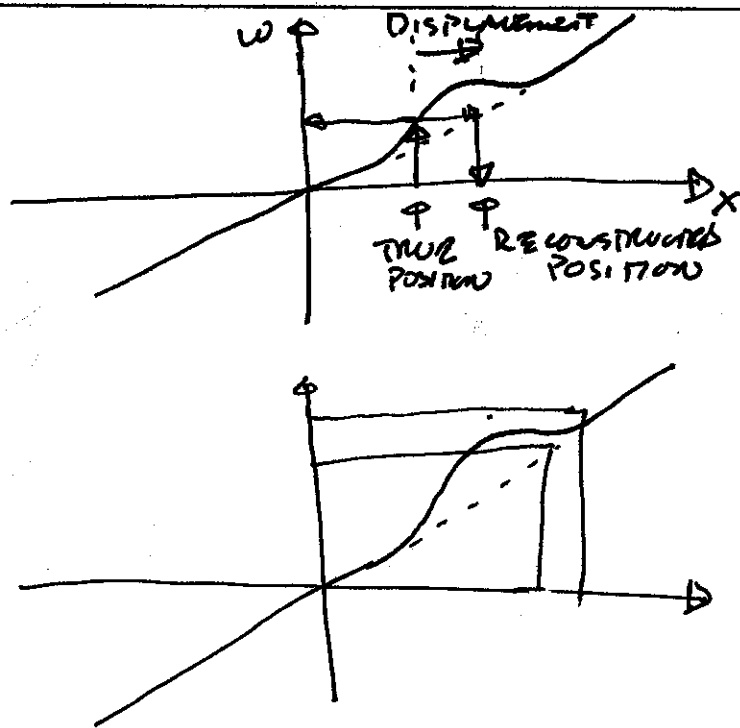 ω
DISPLACEMENT
X
TRUE POSITION
RECONSTRUCTED POSITION